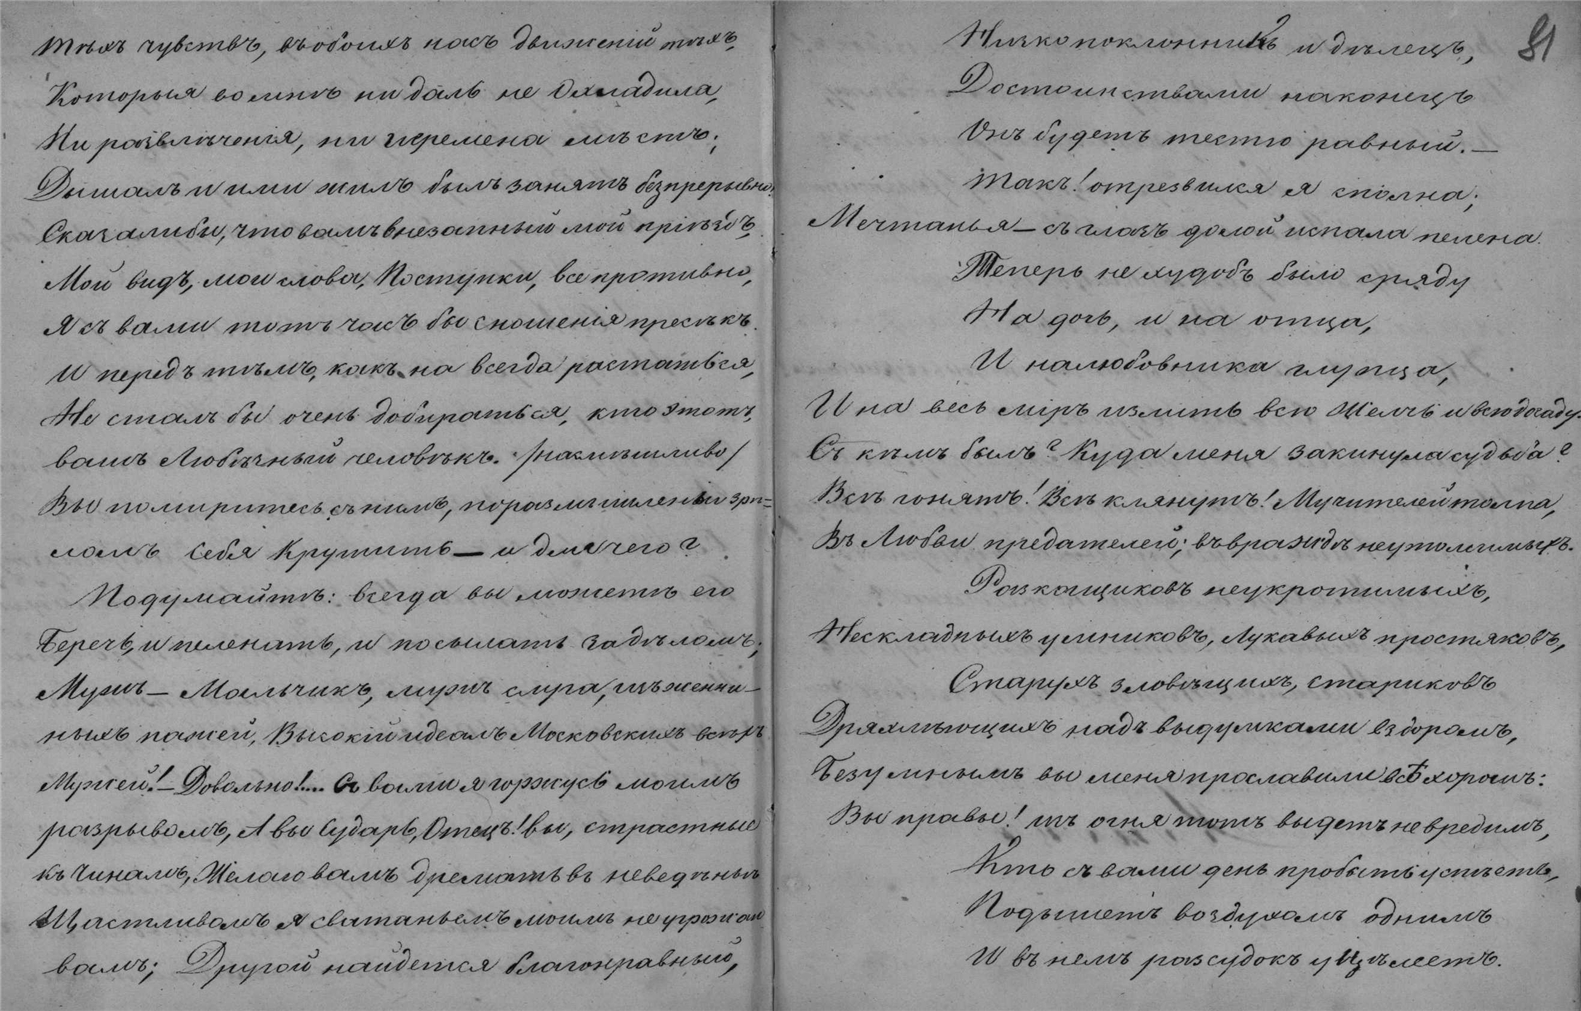 тѣхъ чувствъ, въ обоихъ насъ движеній тѣхъ,
Которыя во мнѣ ни даль не Охладила,
Ни развлѣченія, ни перемена мѣстъ;
Дышалъ и ими жилъ былъ занятъ безпрерывно,
Сказалибы, что вамъ внезапный мой пріѣздъ,
Мой видъ, мои слова, Поступки, все противно,
Я съ вами тотъ часъ бы сношенія пресѣкъ.
И передъ тѣмъ, какъ на всегда растаться,
Не сталъ бы очень добираться, кто этотъ,
вашъ Любѣзный человѣкъ. /насмѣшливо/
Вы помиритесь съ нимъ, поразмышленьи зрѣ=
ломъ Себя Крушить — и для чего?
Подумайтѣ: всегда вы можетѣ его
Беречь, и пеленать, и посылать за дѣломъ;
Мужъ — Мальчикъ, мужъ слуга, изъ женни—
ныхъ пажей, Высокій идеалъ Московскихъ всѣхъ
Мужей! — Довольно!.... Съ вами я горжусь моимъ
разрывомъ, А вы Сударь, Отецъ! вы, страстные
къ Чинамъ, Желаю вамъ дремать въ неведѣньи
Щастливомъ я сватаньемъ моимъ не угрожаю
вамъ; Другой найдется благонравный,
81
Низкопоклонникъ и дѣлецъ,
Достоинствами наконецъ
Онъ будетъ тестю равный. —
Такъ! отрезвился я сполна;
Мечтанья — съ глазъ долой и спала пелена.
Теперь не худобъ было сряду
На дочь, и на отца,
И на любовника глупца,
И на весь міръ излить всю Жёлчь и всю досаду.
Съ кѣмъ былъ? Куда меня закинула судьба?
Всѣ гонятъ! Всѣ клянутъ! Мучителей толпа,
Въ Любви предателей; въ враждѣ неутолимыхъ.
Разкащиковъ неукротимыхъ,
Нескладныхъ умниковъ, Лукавыхъ простяковъ,
Старухъ зловѣщихъ, стариковъ
Дряхлѣющихъ надъ выдумками вздоромъ,
Безумнымъ вы меня прославили всѣ хоромъ:
Вы правы! изъ огня тотъ выдетъ невредимъ,
Кто съ вами день пробыть успѣетъ,
Подышетъ воздухомъ однимъ
И въ немъ разсудокъ уцѣлеетъ.